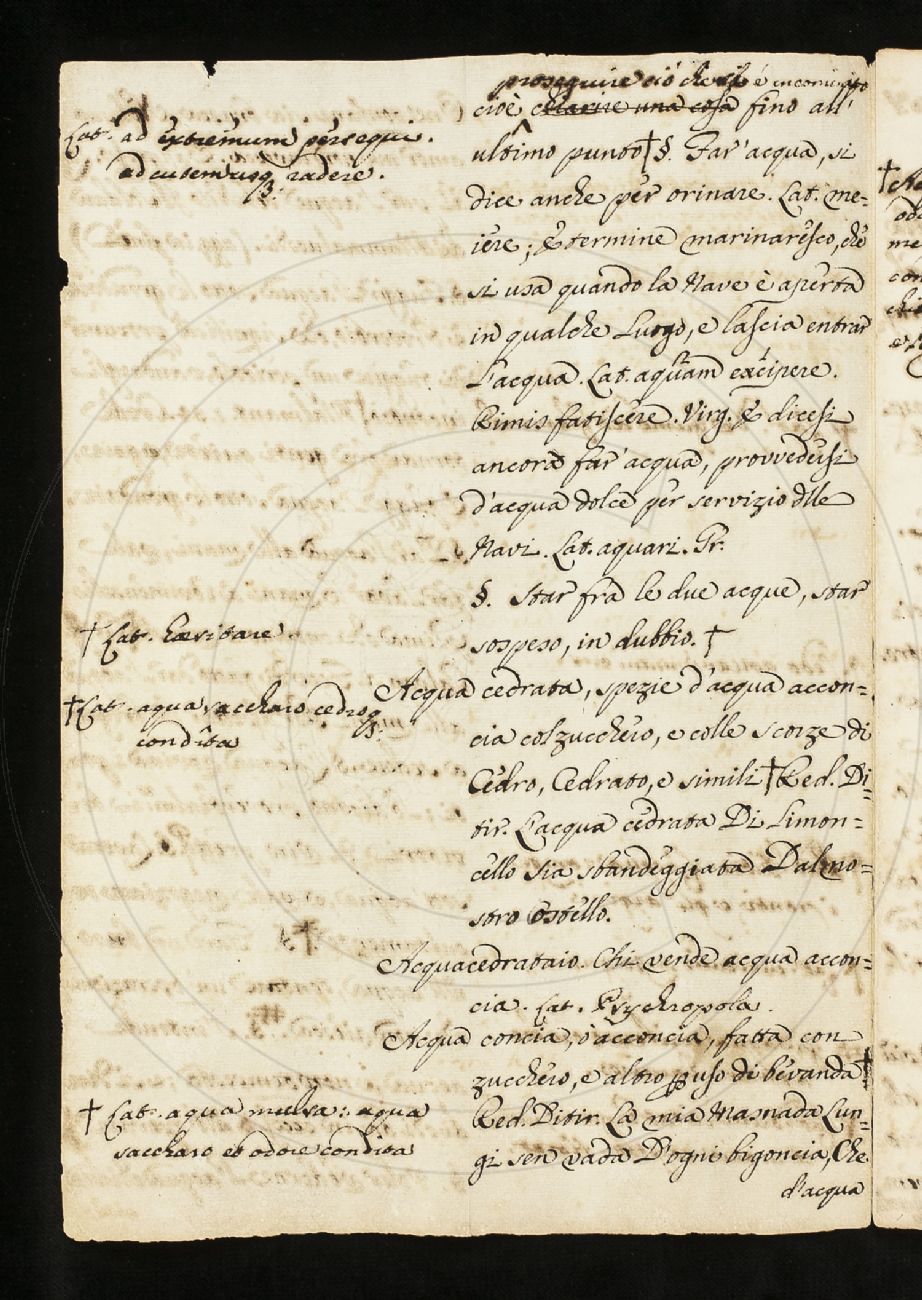 proseguire ciò che si è incominciato
cioè chiarire una cosa fino all'
ultimo punto† §. Far'acqua, si
dice anche per orinare. Lat. me=
iere; È termine marinaresco, che
si usa quando la Nave è aperta
in qualche Luogo, e lascia entrar
L'acqua. Lat. aquam excipere.
Rimis fatiscere. Virg. E dicesi
ancora far'acqua, provvedersi
d'acqua dolce per servizio dlle
Navi. Lat. aquari. Gr.
§. Star fra le due acque, star
sospeso, in dubbio. †
Acqua cedrata, spezie d'acqua accon=
cia col zucchero, e colle scorze di
Cedro, Cedrato, e simili † Red. Di=
tir. L'acqua cedrata Di Limon=
cello Sia sbandeggiata Dal no=
stro Ostello.
Acquacedrataio. Chi vende acqua accon=
cia. Lat. Psychropola.
Acqua concia, ò acconcia, fatta con
zucchero, e altro p uso di bevanda †
Red. Ditir. La mia Masnada Lun=
gi sen vada D'ogni bigoncia, Che
d'acqua
Lat. ad extremum persequi.
ad cutem usq; radere.
† Lat. haesitare
† Lat. aqua saccharo cedroq;
condita
† Lat. aqua mulsa: aqua
saccharo et odore condita